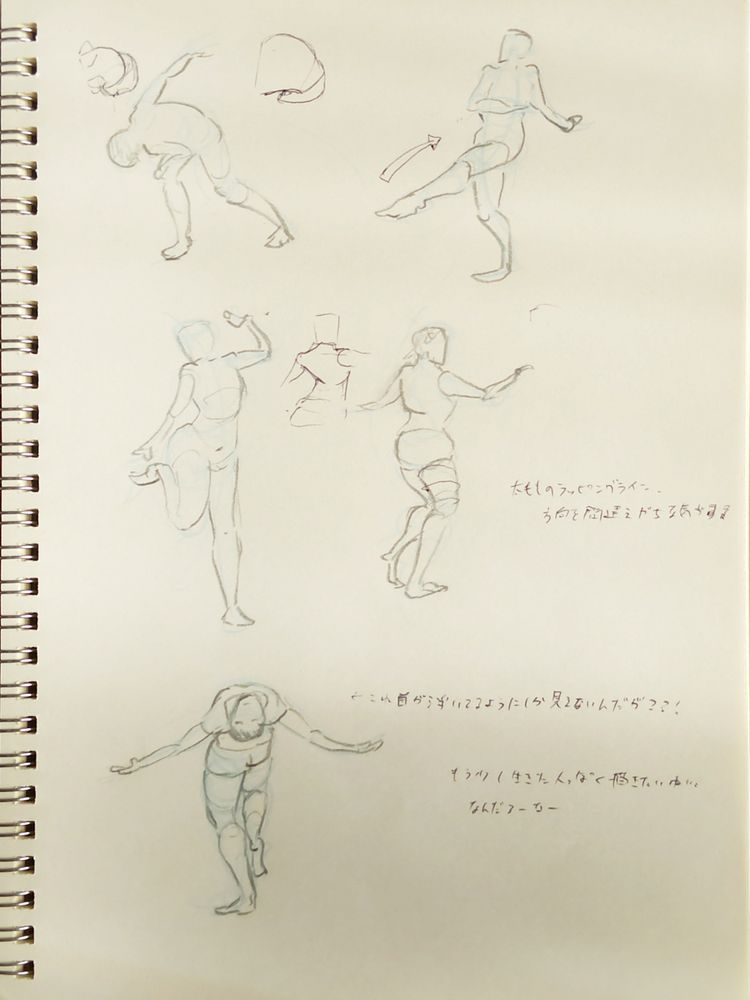 太もものラッピングライン、
方向を間違えがちな気がする
←これ首が浮いてるようにしか見えないんだが??!
もう少し生きた人っぽく描きたいゆい、
なんだろーなー